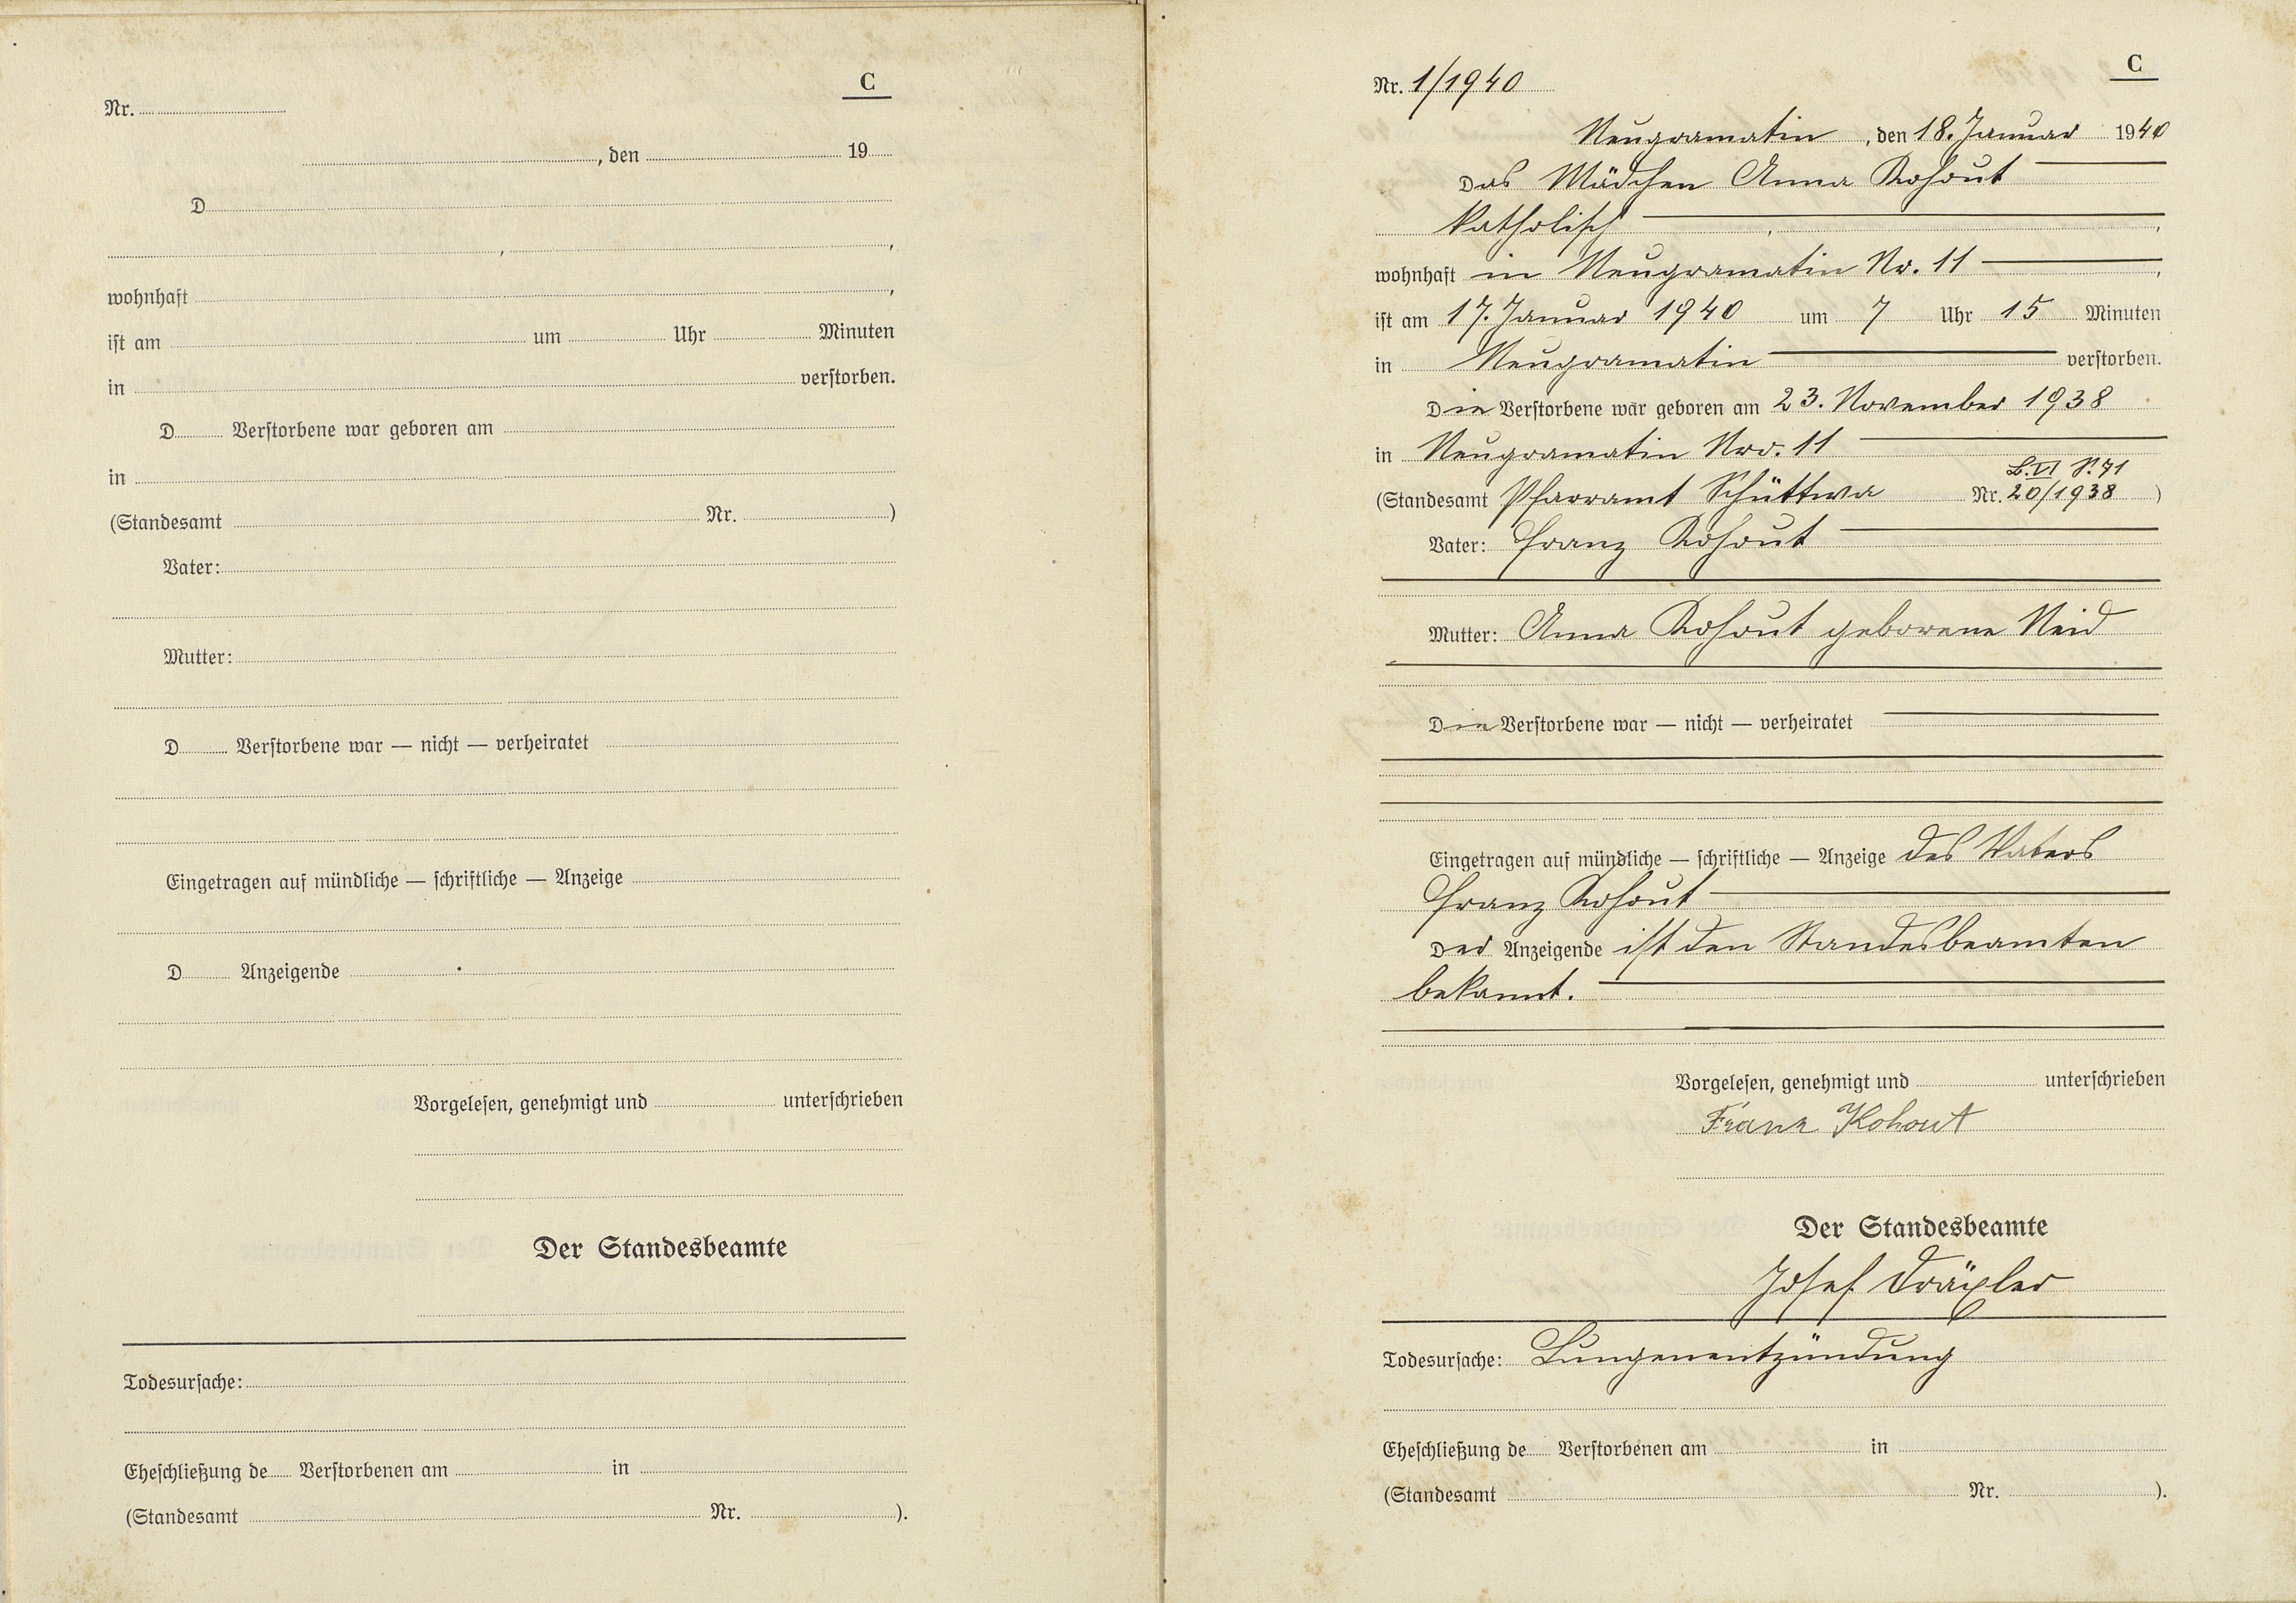 C
Nr.
, den 19
D
, ,
wohnhaft ,
ist am um Uhr Minuten
in verstorben.
D Verstorbene war geboren am
in
(Standesamt Nr. )
Vater:
Mutter:
D Verstorbene war — nicht — verheiratet
Eingetragen auf mündliche — schriftliche — Anzeige
D Anzeigende
Vorgelesen, genehmigt und unterschrieben
Der Standesbeamte
Todesursache:
Eheschließung de Verstorbenen am in
(Standesamt Nr. ).
C
Nr. 1/1940
Neugramatin, den 18. Januar 1940
Das Mädchen Anna Kohout
katholisch , ,
wohnhaft in Neugramatin Nr. 11 ,
ist am 17. Januar 1940 um 7 Uhr 15 Minuten
in Neugramatin verstorben.
Die Verstorbene war geboren am 23. November 1938
in Neugramatin Nro. 11
B. VI S. 71
(Standesamt Pfarramt Schüttwa Nr. 20/1938 )
Vater: Franz Kohout
Mutter: Anna Kohout geborene Neid
Die Verstorbene war — nicht — verheiratet
Eingetragen auf mündliche — schriftliche — Anzeige des Vaters
Franz Kohout
Der Anzeigende ist den Standesbeamten
bekannt.
Vorgelesen, genehmigt und unterschrieben
Franz Kohout
Der Standesbeamte
Josef Dräxler
Todesursache: Lungenentzündung
Eheschließung de Verstorbenen am in
(Standesamt Nr. ).